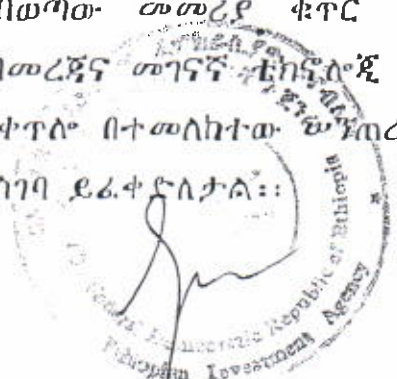 በወጣው መመሪያ ቁጥር
መረጃና መገናኛ ቴክኖሎጂ
ቀጥሎ በተመለከተው
ገባ ይፈቀድለታል፡፡
Federal Democratic Republic of Ethiopia
Ethiopian Investment Agency